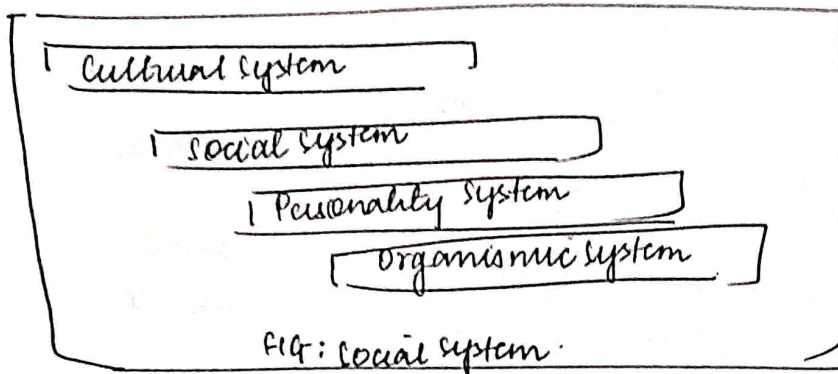 Cultural system
Social system
Personality system
Organismic system
FIG: Social system.